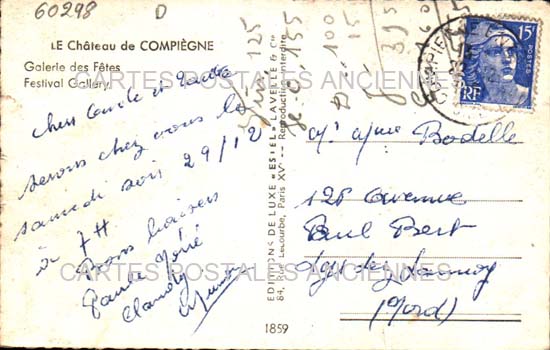 60298
D
LE Château de COMPIÈGNE
Galerie des Fêtes
Festival Gallery
CARTES POSTALES ANCIENNES
Chers et
serons chez vous le
samedi soir 29/12
à 7H
Bons baisers
Paule
Claude
EDITIONS DE LUXE "ESTEL" LAVELLE & Cie
84, Rue Lecourbe, Paris XVe - Reproduction interdite
1859
125
155
100
15
15F
POSTES
RF
COMPIEGNE
Mr Mme Bodelle
128 avenue
Paul Bert
Lys lez Lannoy
(Nord)
CARTES POSTALES ANCIENNES